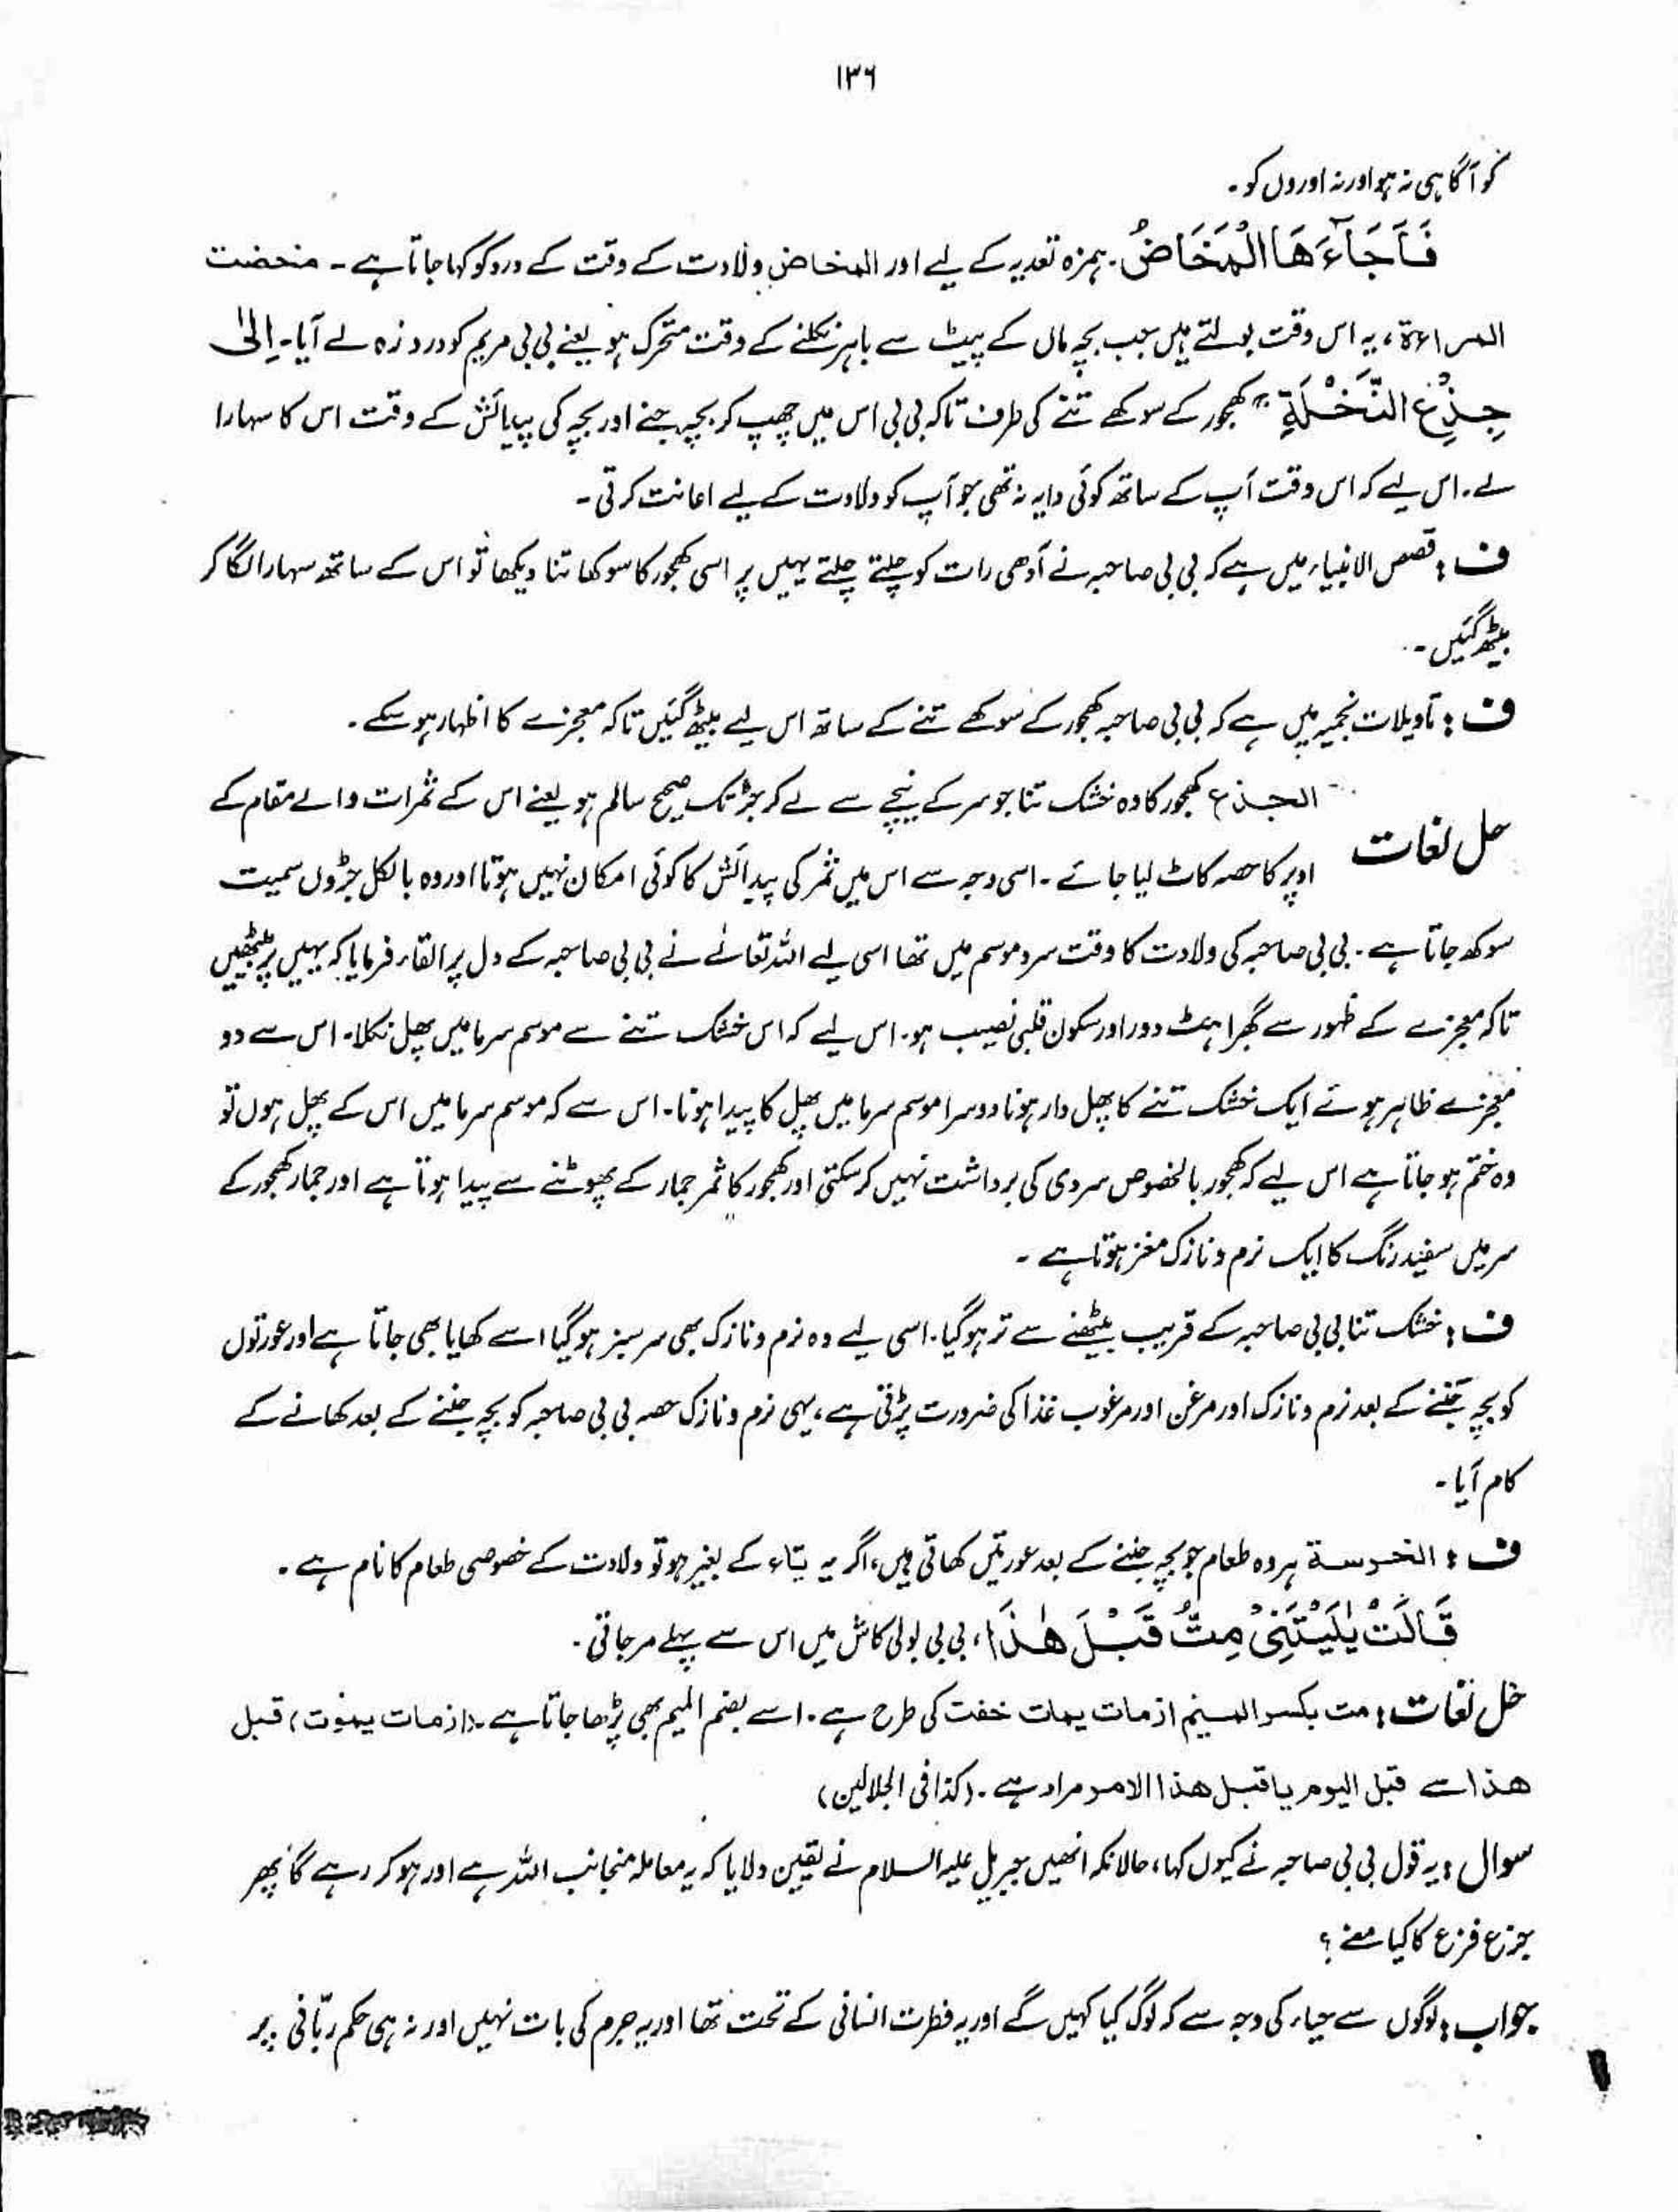 ۱۳۶
کو آگاہی نہ ہو اور نہ اوروں کو۔
فَاَجَآءَهَا الْمَخَاضُ۔ ہمزہ تعدیہ کے لیے اور المخاض ولادت کے وقت کے درد کو کہا جاتا ہے۔ مخضت
المراءۃ، یہ اس وقت بولتے ہیں جب بچہ ماں کے پیٹ سے باہر نکلنے کے وقت متحرک ہو یعنے بی بی مریم کو درد زہ لے آیا۔ اِلیٰ
جِذْعِ النَّخْلَةِ کھجور کے سوکھے تنے کی طرف تاکہ بی بی اس میں چھپ کر بچہ جنے اور بچہ کی پیدائش کے وقت اس کا سہارا
لے۔ اس لیے کہ اس وقت آپ کے ساتھ کوئی دایہ نہ تھی جو آپ کو ولادت کے لیے اعانت کرتی۔
ف : قصص الانبیاء میں ہے کہ بی بی صاحبہ نے آدھی رات کو چلتے چلتے یہیں پر اسی کھجور کا سوکھا تنا دیکھا تو اس کے ساتھ سہارا لگا کر
بیٹھ گئیں۔
ف : تاویلات نجمیہ میں ہے کہ بی بی صاحبہ کھجور کے سوکھے تنے کے ساتھ اس لیے بیٹھ گئیں تاکہ معجزے کا اظہار ہو سکے۔
حل لغات الجذع کھجور کا وہ خشک تنا جو سر کے نیچے سے لے کر جڑ تک صحیح سالم ہو یعنے اس کے ثمرات والے مقام کے
اوپر کا حصہ کاٹ لیا جائے۔ اسی وجہ سے اس میں ثمر کی پیدائش کا کوئی امکان نہیں ہوتا اور وہ بالکل جڑوں سمیت
سوکھ جاتا ہے۔ بی بی صاحبہ کی ولادت کا وقت سرد موسم میں تھا اسی لیے اللہ تعالےٰ نے بی بی صاحبہ کے دل پر القاء فرمایا کہ یہیں پر بیٹھیں
تاکہ معجزے کے ظہور سے گھبراہٹ دور اور سکون قلبی نصیب ہو۔ اس لیے کہ اس خشک تنے سے موسم سرما میں پھل نکلا۔ اس سے دو
معجزے ظاہر ہوئے ایک خشک تنے کا پھل دار ہونا دوسرا موسم سرما میں پھل کا پیدا ہونا۔ اس سے کہ موسم سرما میں اس کے پھل ہوں تو
وہ ختم ہو جاتا ہے اس لیے کہ کھجور بالخصوص سردی کی برداشت نہیں کر سکتی اور کھجور کا ثمر جمار کے پھوٹنے سے پیدا ہوتا ہے اور جمار کھجور کے
سر میں سفید رنگ کا ایک نرم و نازک مغز ہوتا ہے ۔
ف : خشک تنا بی بی صاحبہ کے قریب بیٹھنے سے تر ہو گیا۔ اسی لیے وہ نرم و نازک بھی سرسبز ہو گیا اسے کھایا بھی جاتا ہے اور عورتوں
کو بچہ جننے کے بعد نرم و نازک اور مرغن اور مرغوب غذا کی ضرورت پڑتی ہے، یہی نرم و نازک حصہ بی بی صاحبہ کو بچہ جننے کے بعد کھانے کے
کام آیا۔
ف : الخرسة ہر وہ طعام جو بچہ جننے کے بعد عورتیں کھاتی ہیں، اگر یہ تاء کے بغیر ہو تو ولادت کے خصوصی طعام کا نام ہے۔
قَالَتْ یٰلَیْتَنِیْ مِتُّ قَبْلَ هٰذَا، بی بی بولی کاش میں اس سے پہلے مر جاتی۔
حل لغات : مت بکسر المیم از مات یمات خفت کی طرح ہے۔ اسے بضم المیم بھی پڑھا جاتا ہے۔ (از مات یموت) قبل
هذا سے قبل الیوم یا قبل هذا الامر مراد ہے۔ (کذا فی الجلالین)
سوال : یہ قول بی بی صاحبہ نے کیوں کہا، حالانکہ انھیں جبریل علیہ السلام نے یقین دلایا کہ یہ معاملہ منجانب اللہ ہے اور ہو کر رہے گا پھر
جزع فزع کا کیا معنے ؟
جواب : لوگوں سے حیاء کی وجہ سے کہ لوگ کیا کہیں گے اور یہ فطرت انسانی کے تحت تھا اور یہ جرم کی بات نہیں اور نہ ہی حکم ربّانی پر